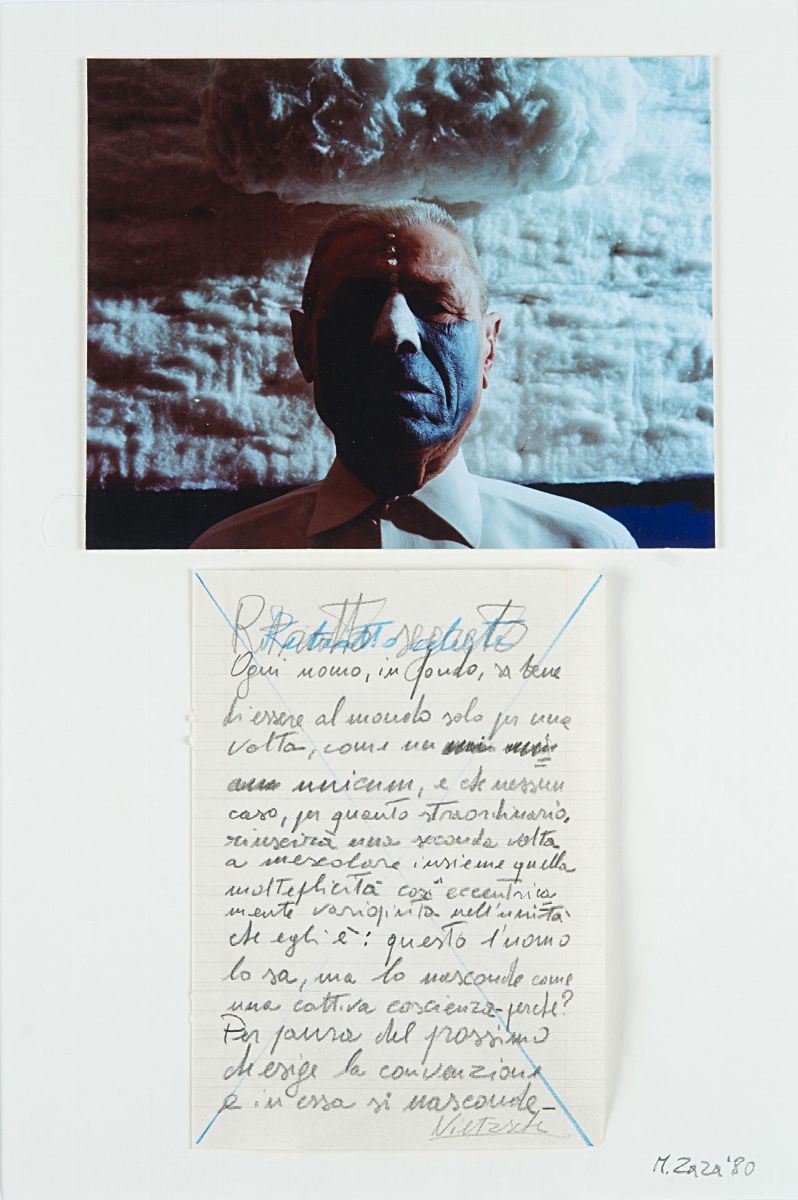 Ritratto segreto
Ritratto celeste
Ogni uomo, in fondo, sa bene
di essere al mondo solo per una
volta, come un
unicum, e che nessun
caso, per quanto straordinario,
riuscirà una seconda volta
a mescolare insieme quella
molteplicità così eccentrica
mente variopinta nell'unità
che egli è: questo l'uomo
lo sa, ma lo nasconde come
una cattiva coscienza - perché?
Per paura del prossimo
che esige la convenzione
e in essa si nasconde -
Nietzsche
M. Zaza '80